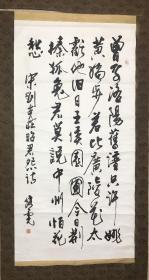 曾看洛陽舊譜只许姚
黄獨步若比廣陵花太
虧他旧日王侯園圃今日荆
榛狐兔君莫説中州怕花
愁 宋劉克莊